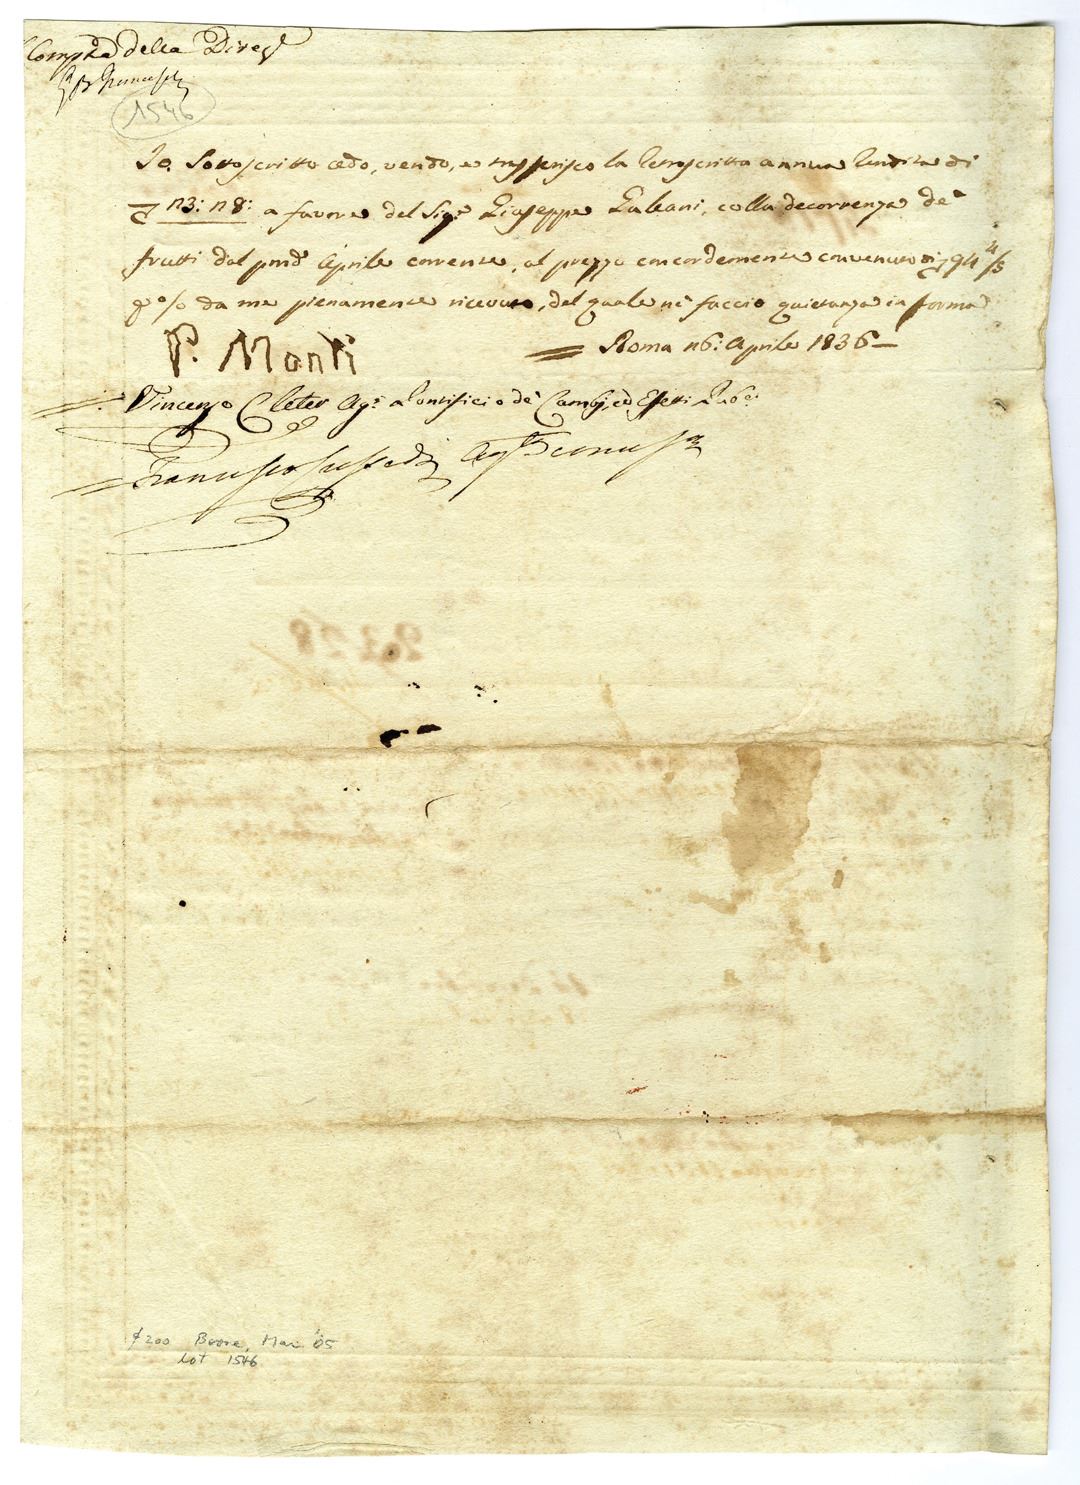 Comp.ta della Direz.
1546
Io Sottoscritto cedo, vendo, e trasferisco la retroscritta annua Rendita di
n3: n8: a favore del Sig.r Giuseppe Galeani, colla decorrenza de'
frutti dal pmo Aprile corrente, al prezzo concordemente convenuto di 94 4/5
p % da me pienamente ricevuto, del quale ne faccio quietanza in forma
P. Monti
Roma n6: Aprile 1836
Vincenzo Cleter Ag.e Pontificio de' Cambj, ed Effetti Pub.ci
Francesco
2328
£200 Boone, Mar '05
Lot 1546